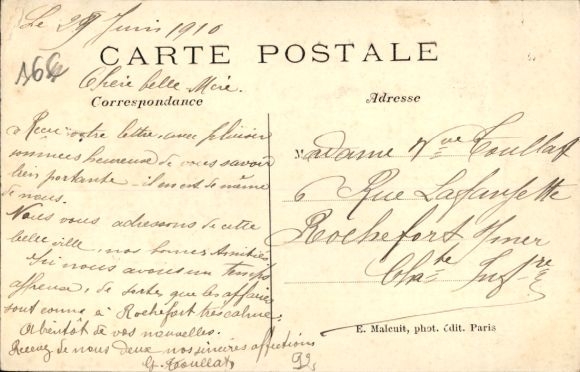 Le 29 Juin 1910
CARTE POSTALE
166
Chère belle Mère.
Correspondance
Adresse
Reçu votre lettre, avec plaisir
sommes heureuse de vous savoir
bien portante il en est de même
de nous.
Nous vous adressons de cette
belle ville, nos bonnes Amitiés
Ici nous avons un temps
affreux, de sortes que les affaires
sont comme à Rochefort très calme.
A bientôt de vos nouvelles.
Recevez de nous deux nos sincères affections
G. Toullat
Madame Vve Toullat
6 Rue Lafayette
Rochefort s/mer
Chte Infre
E. Malcuit, phot. édit. Paris
92